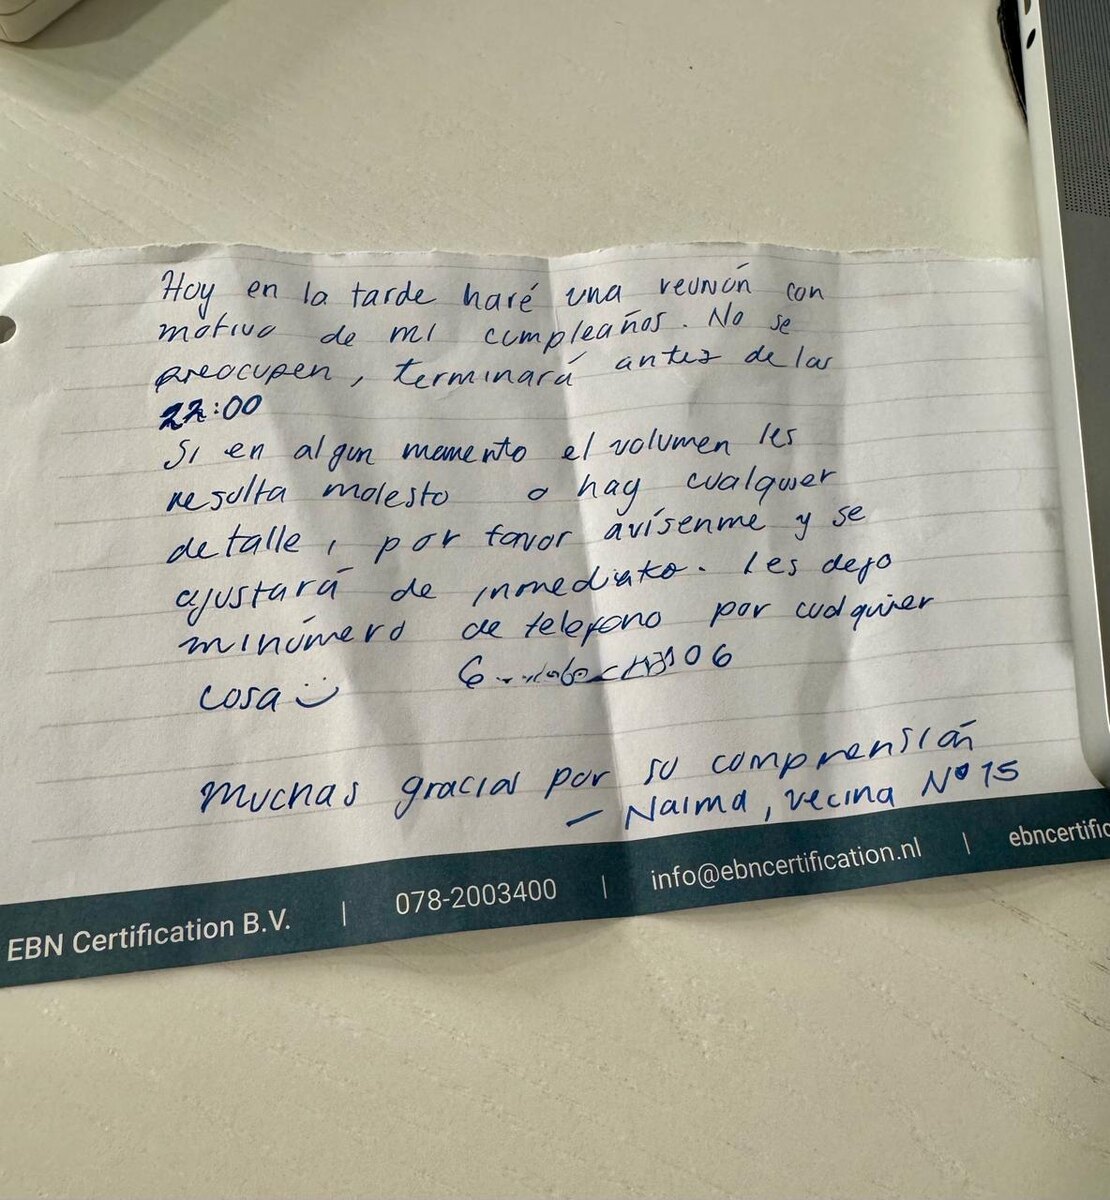 Hoy en la tarde haré una reunión con
motivo de mi cumpleaños. No se
preocupen, terminará antes de las
22:00
Si en algun momento el volumen les
resulta molesto o hay cualquier
detalle, por favor avísenme y se
ajustará de inmediato. Les dejo
mi número de telefono por cualquier
cosa
Muchas gracias por su comprensión
– Naima, vecina Nº 15
EBN Certification B.V. | 078-2003400 | info@ebncertification.nl |